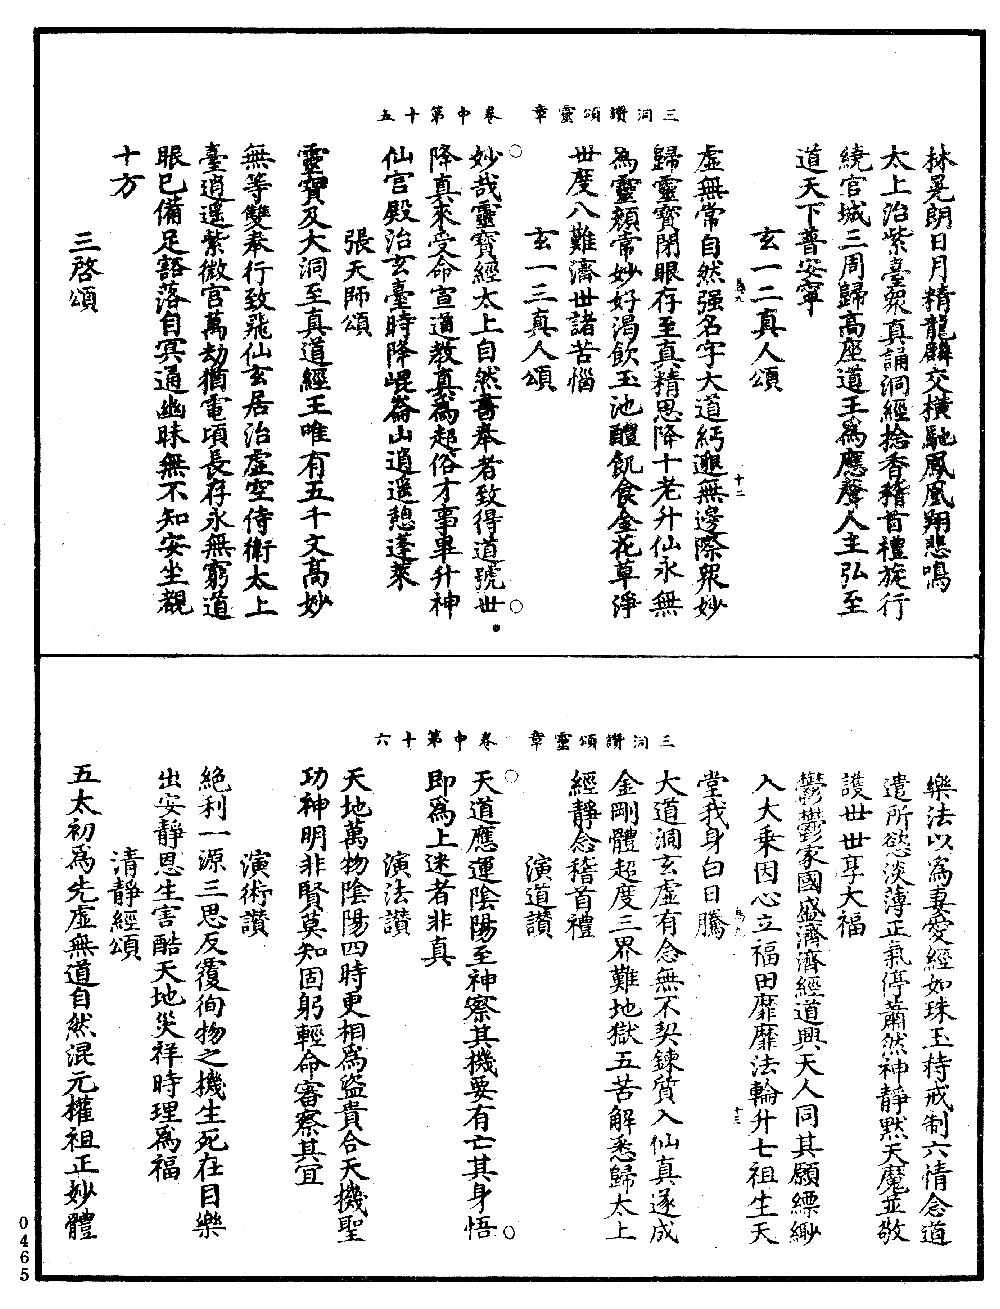 三洞讚頌靈章　卷中第十五
林晃朗日月精龍驎交橫馳鳳凰翔悲鳴
太上治紫臺衆真誦洞經捻香稽首禮旋行
繞宮城三周歸高座道王為應聲人主弘至
道天下普安寧
玄一二真人頌
虛無常自然强名字大道紆迴無邊際衆妙
歸靈寳閉眼存至真精思降十老升仙永無
為靈顏常妙好渴飲玉池醴飢食金花草淨
世度八難濟世諸苦惱
玄一三真人頌
妙哉靈寳經太上自然書奉者致得道號世
降真來受命宣通教真為起俗才事畢升神
仙宮殿治玄臺時降崐崙山逍遥憩蓬萊
張天師頌
靈寳及大洞至真道經王唯有五千文高妙
無等雙奉行致飛仙玄居治虛空侍衛太上
臺逍遥紫微宮萬劫猶電頃長存永無窮道
眼已備足豁落自冥通幽昧無不知安坐觀
十方
三啓頌
十二
三洞讚頌靈章　卷中第十六
樂法以為妻愛經如珠玉持戒制六情念道
遣所慾淡薄正氣停蕭然神靜默天魔並敬
護世世享大福
鬱鬱家國盛濟濟經道興天人同其願縹緲
入大乘因心立福田靡靡法輪升七祖生天
堂我身白日騰
大道洞玄虛有念無不契鍊質入仙真遂成
金剛體超度三界難地獄五苦解悉歸太上
經靜念稽首禮
演道讚
天道應運陰陽至神察其機要有亡其身悟
即為上迷者非真
演法讚
天地萬物陰陽四時更相為盜貴合天機聖
功神明非賢莫知固躬輕命審察其宜
演術讚
絶利一源三思反覆徇物之機生死在目樂
出安靜恩生害酷天地災祥時理為福
清靜經頌
五太初為先虛無道自然混元權祖正妙體
十三
0465